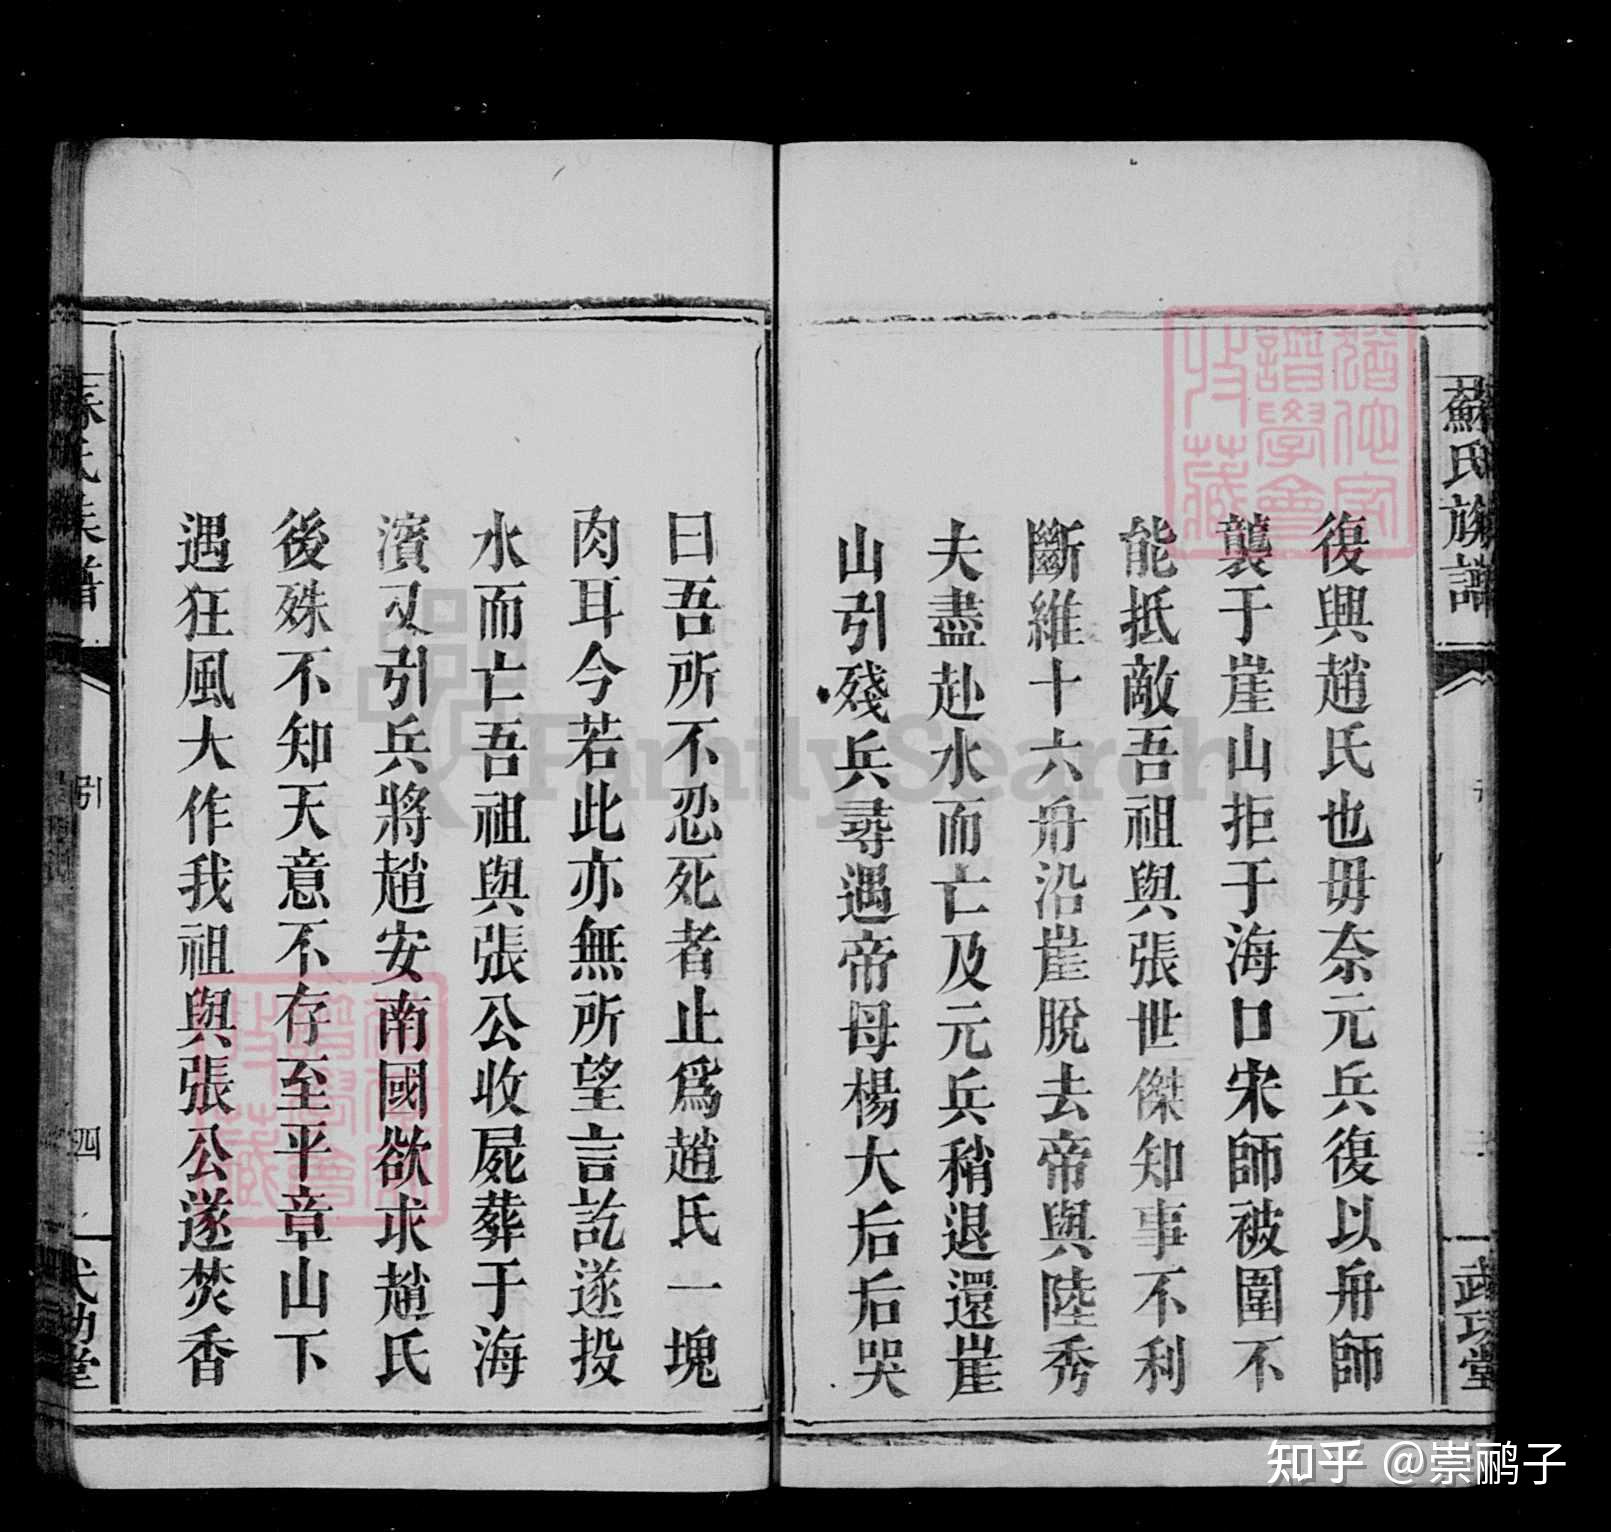 蘇氏族譜
武功堂
復興趙氏也毋奈元兵復以舟師
襲于崖山拒于海口宋師被圍不
能抵敵吾祖與張世傑知事不利
斷維十六舟沿崖脫去帝與陸秀
夫盡赴水而亡及元兵稍退還崖
山引殘兵尋遇帝母楊大后后哭
曰吾所不忍死者止爲趙氏一塊
肉耳今若此亦無所望言訖遂投
水而亡吾祖與張公收屍葬于海
濱又引兵將趙安南國欲求趙氏
後殊不知天意不存至平章山下
遇狂風大作我祖與張公遂焚香
引
四
譜學會
收藏
FamilySearch
知乎 @崇鹂子